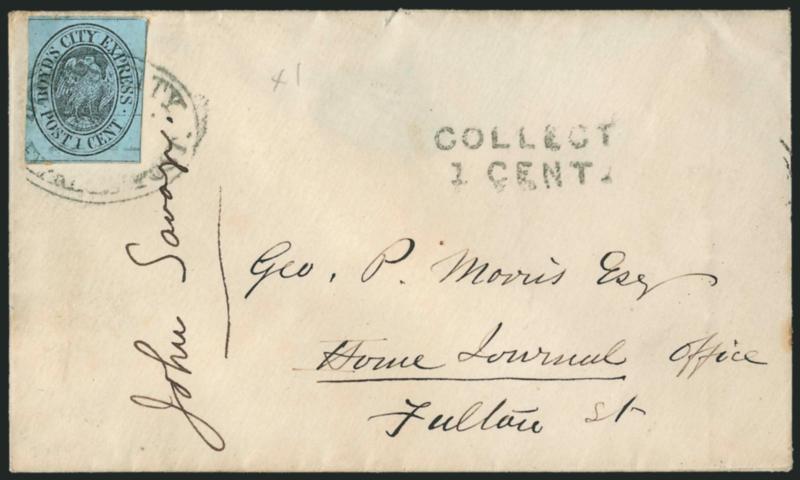 BOYD'S CITY EXPRESS
POST 1 CENT
CITY
x1
COLLECT
1 CENT.
John Savage.
Geo. P. Morris Esq
Home Journal Office
Fulton St